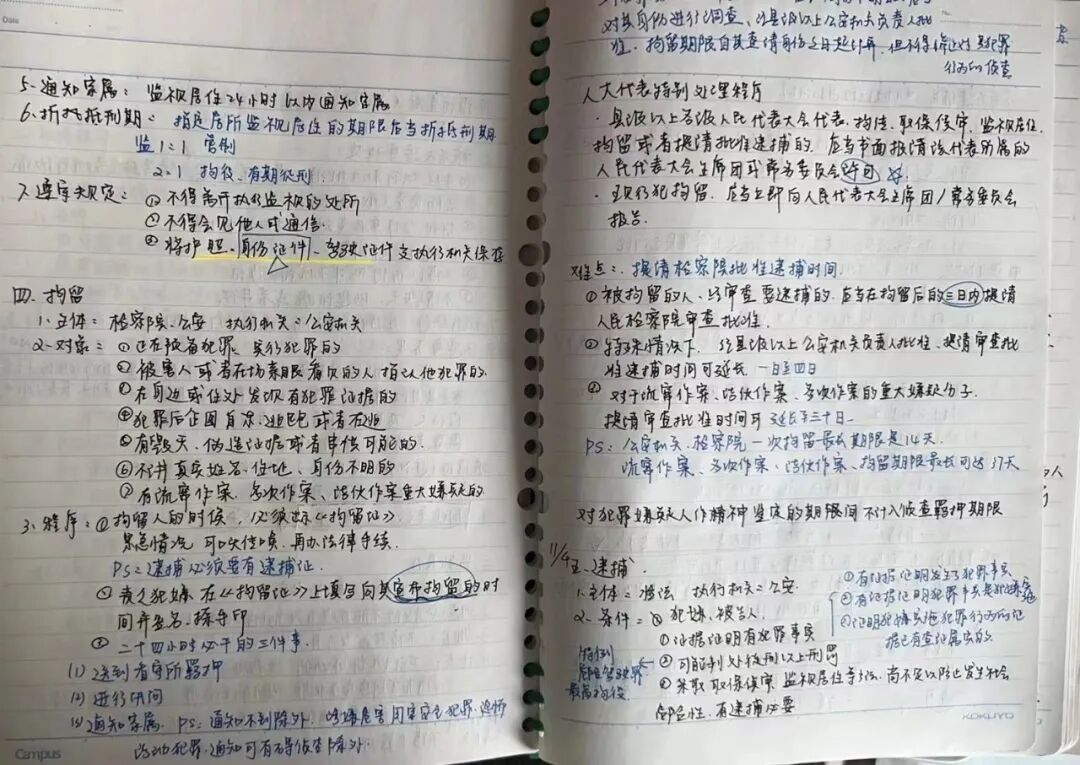 Date
5. 通知家属：监视居住24小时以内通知家属
6. 折抵刑期：指定居所监视居住的期限应当折抵刑期
监 1=1 管制
2=1 拘役、有期徒刑
7. 遵守规定：① 不得离开执行监视的处所
② 不得会见他人或通信
③ 将护照、身份证件、驾驶证件交执行机关保存
四、拘留
1. 主体：检察院、公安 执行机关：公安机关
2. 对象：① 正在预备犯罪、实行犯罪的
② 被害人或者在场亲眼看见的人指认他犯罪的
③ 在身边或住处发现有犯罪证据的
④ 犯罪后企图自杀、逃跑或者在逃
⑤ 有毁灭、伪造证据或者串供可能的
⑥ 不讲真实姓名、住址、身份不明的
⑦ 有流窜作案、多次作案、结伙作案重大嫌疑的
3. 程序：① 拘留人的时候，必须出示《拘留证》
紧急情况 可口头传唤，再办法律手续.
PS：逮捕必须要有逮捕证.
② 责令犯嫌在《拘留证》上填写向其宣布拘留的时
间并签名、捺手印
③ 二十四小时必干的三件事.
(1) 送到看守所羁押
(2) 进行讯问
(3) 通知家属. PS：通知不到除外，涉嫌危害国家安全犯罪、恐怖
活动犯罪、通知可有碍侦查除外.
Campus
对其身份进行调查、经县级以上公安机关负责人批
准，拘留期限自其查清身份之日起计算，但不得停止对其犯罪
行为的侦查
人大代表特别处理程序
· 县级以上各级人民代表大会代表，拘传、取保候审、监视居住、
拘留或者提请批准逮捕的，应当书面报请该代表所属的
人民代表大会主席团或常务委员会许可 ☆.
· 现行犯拘留，应当立即向人民代表大会主席团/常务委员会
报告.
难点：提请检察院批准逮捕时间
① 被拘留的人、经审查要逮捕的，应当在拘留后的三日内提请
人民检察院审查批准.
② 特殊情况下，经县级以上公安机关负责人批准、提请审查批
准逮捕时间可延长 一日至四日
③ 对于流窜作案、结伙作案、多次作案的重大嫌疑分子.
提请审查批准时间可 延长至三十日.
PS：公安机关、检察院一次拘留最长期限是14天.
流窜作案、多次作案、结伙作案、拘留期限最长可达37天
对犯罪嫌疑人作精神鉴定的期限间不计入侦查羁押期限
11/4
五、逮捕.
1. 主体： 执行机关：公安
2. 条件：犯嫌、被告人.
① 证据证明有犯罪事实
② 可能判处徒刑以上刑罚
③ 采取取保候审、监视居住等方法，尚不足以防止发生社会
危险性，有逮捕必要
① 有证据证明发生了犯罪事实
② 有证据证明犯罪事实是犯嫌实施
③ 证明犯嫌实施犯罪行为的证
据已有查证属实的.
特例
危险驾驶罪
最高拘役
KOKUYO